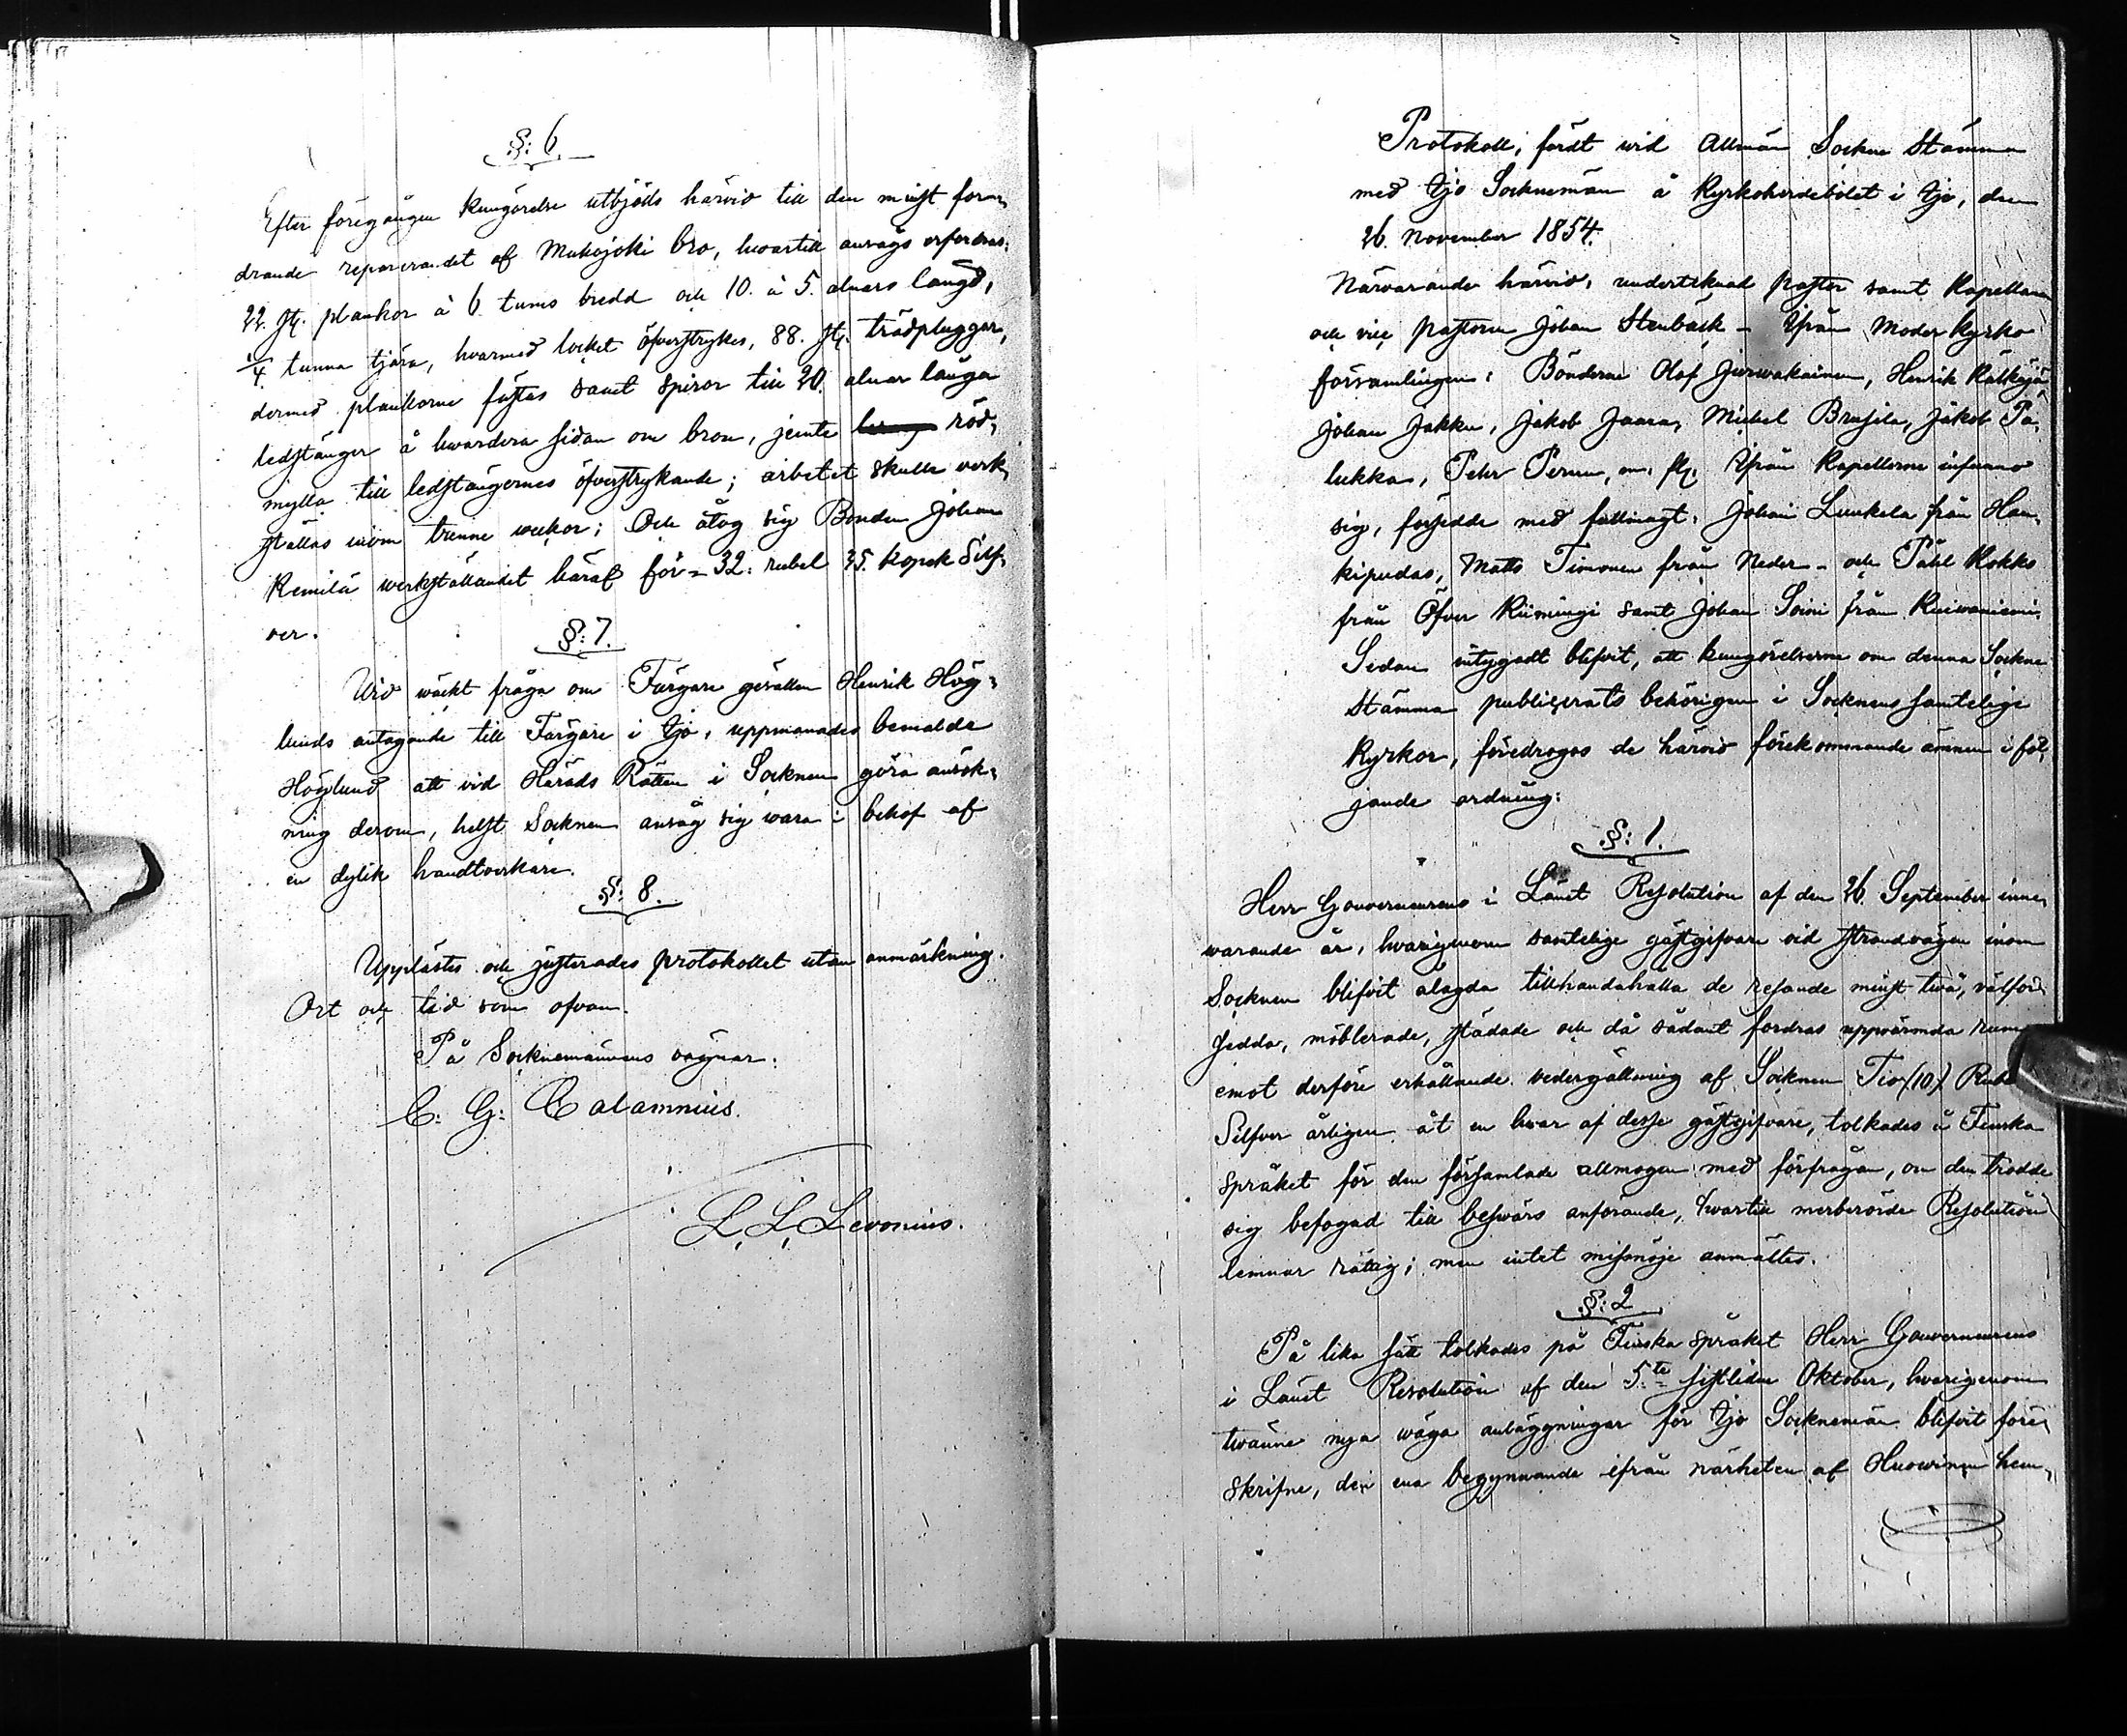 §: 6.
Efter föregången kungörelse utbjöds härvid till den minst fore¬
drande reparerandet af Mukojoki bro, hwartill ansågs erfordras:
22. st. plankor à 6 tums bredd och 10. à 5. alnars längd,
1/4 tunna tjära, hvarmed locket öfverstrykes, 88. st. trädpluggar,
dermed plankorne fästas samt spiror till 20. alnar långa
ledstänger å hwardera sidan om bron, jemte röd¬
mylla till ledstängernes öfverstrykande; arbetet skulle verk¬
ställas inom trenne weckor; Och åtog sig Bonden Johan
Remilä werkställandet häraf för = 32: rubel 35. kopek Silf¬
ver.
§: 7.
Wid wäckt fråga om Färgare gesällen Henrik Hög¬
lunds antagande till Färgare i Ijo, uppmanades bemälde
Höglund att vid Härads Rätten i Socknen göra ansök¬
ning derom, helst Socknen ansåg sig wara i behof af
en dylik handtverkare.
§: 8.
Upplästes och justerades protokollet utan anmärkning.
Ort och tid som ofvan.
På Sockenemännens vägnar:
C: G: Calamnius.
L. L. Levonius.
Protokoll, fördt vid Allmän Sockne Stämma
med Ijo Socknemän å Kyrkoherdebolet i Ijo, den
26. November 1854.
Närvarande härvid, undertecknad pastor samt Kapellanen
och vice pastorn Johan Stenbäck - Ifrån Moder kyrko
församlingen: Bönderne Olof Jurwakainen, Henrik Kälkäjä
Johan Jakku, Jakob Jaara, Michel Brusila, Jakob Pa¬
lukka, Petr Perum, m. fl. Ifrån Kapellerne infunno
sig, försedde med fullmagt: Johan Luukela från Hau¬
kipudas, Matts Timonen från Neder- och Påhl Kokko
från Öfver Kiimingi samt Johan Soini från Kuivaniemi.
Sedan intygadt blifvit, att kungörelserne om denna Sockne
Stämma publicerats behörigen i Socknens samtelige
Kyrkor, föredrogos de härvid förekommande ämnen i föl¬
jande ordning:
§: 1.
Herr Gouverneurens i Länet Resolution af den 26. September inne¬
warande år, hvarigenom samtelige gästgifvare vid strandvägen inom
Socknen blifvit ålagda tillhandahålla de resande minst twå, välför¬
sedda, möblerade, städade och då sådant fordras uppvärmda rum
emot derföre erhållande vedergällning af Socknen Tio (10) Rubel
Silfver årligen åt en hvar af desse gästgifvare, tolkades å Finska
språket för den församlade allmogen med förfrågan, om den trodde
sig befogad till beswärs anförande, hwartill merberörde Resolution
lemnar rättig; men intet missnöje anmältes.
§: 2
På lika sätt tolkades på Finska språket Herr Gouverneurens
i Länet Resolution af den 5:te sistliden Oktober, hvarigenom
twänne nya wäga anläggningar för Ijo Socknemän blifvit före¬
skrifne, den ena begynnande ifrån närheten af Huowinen hem¬